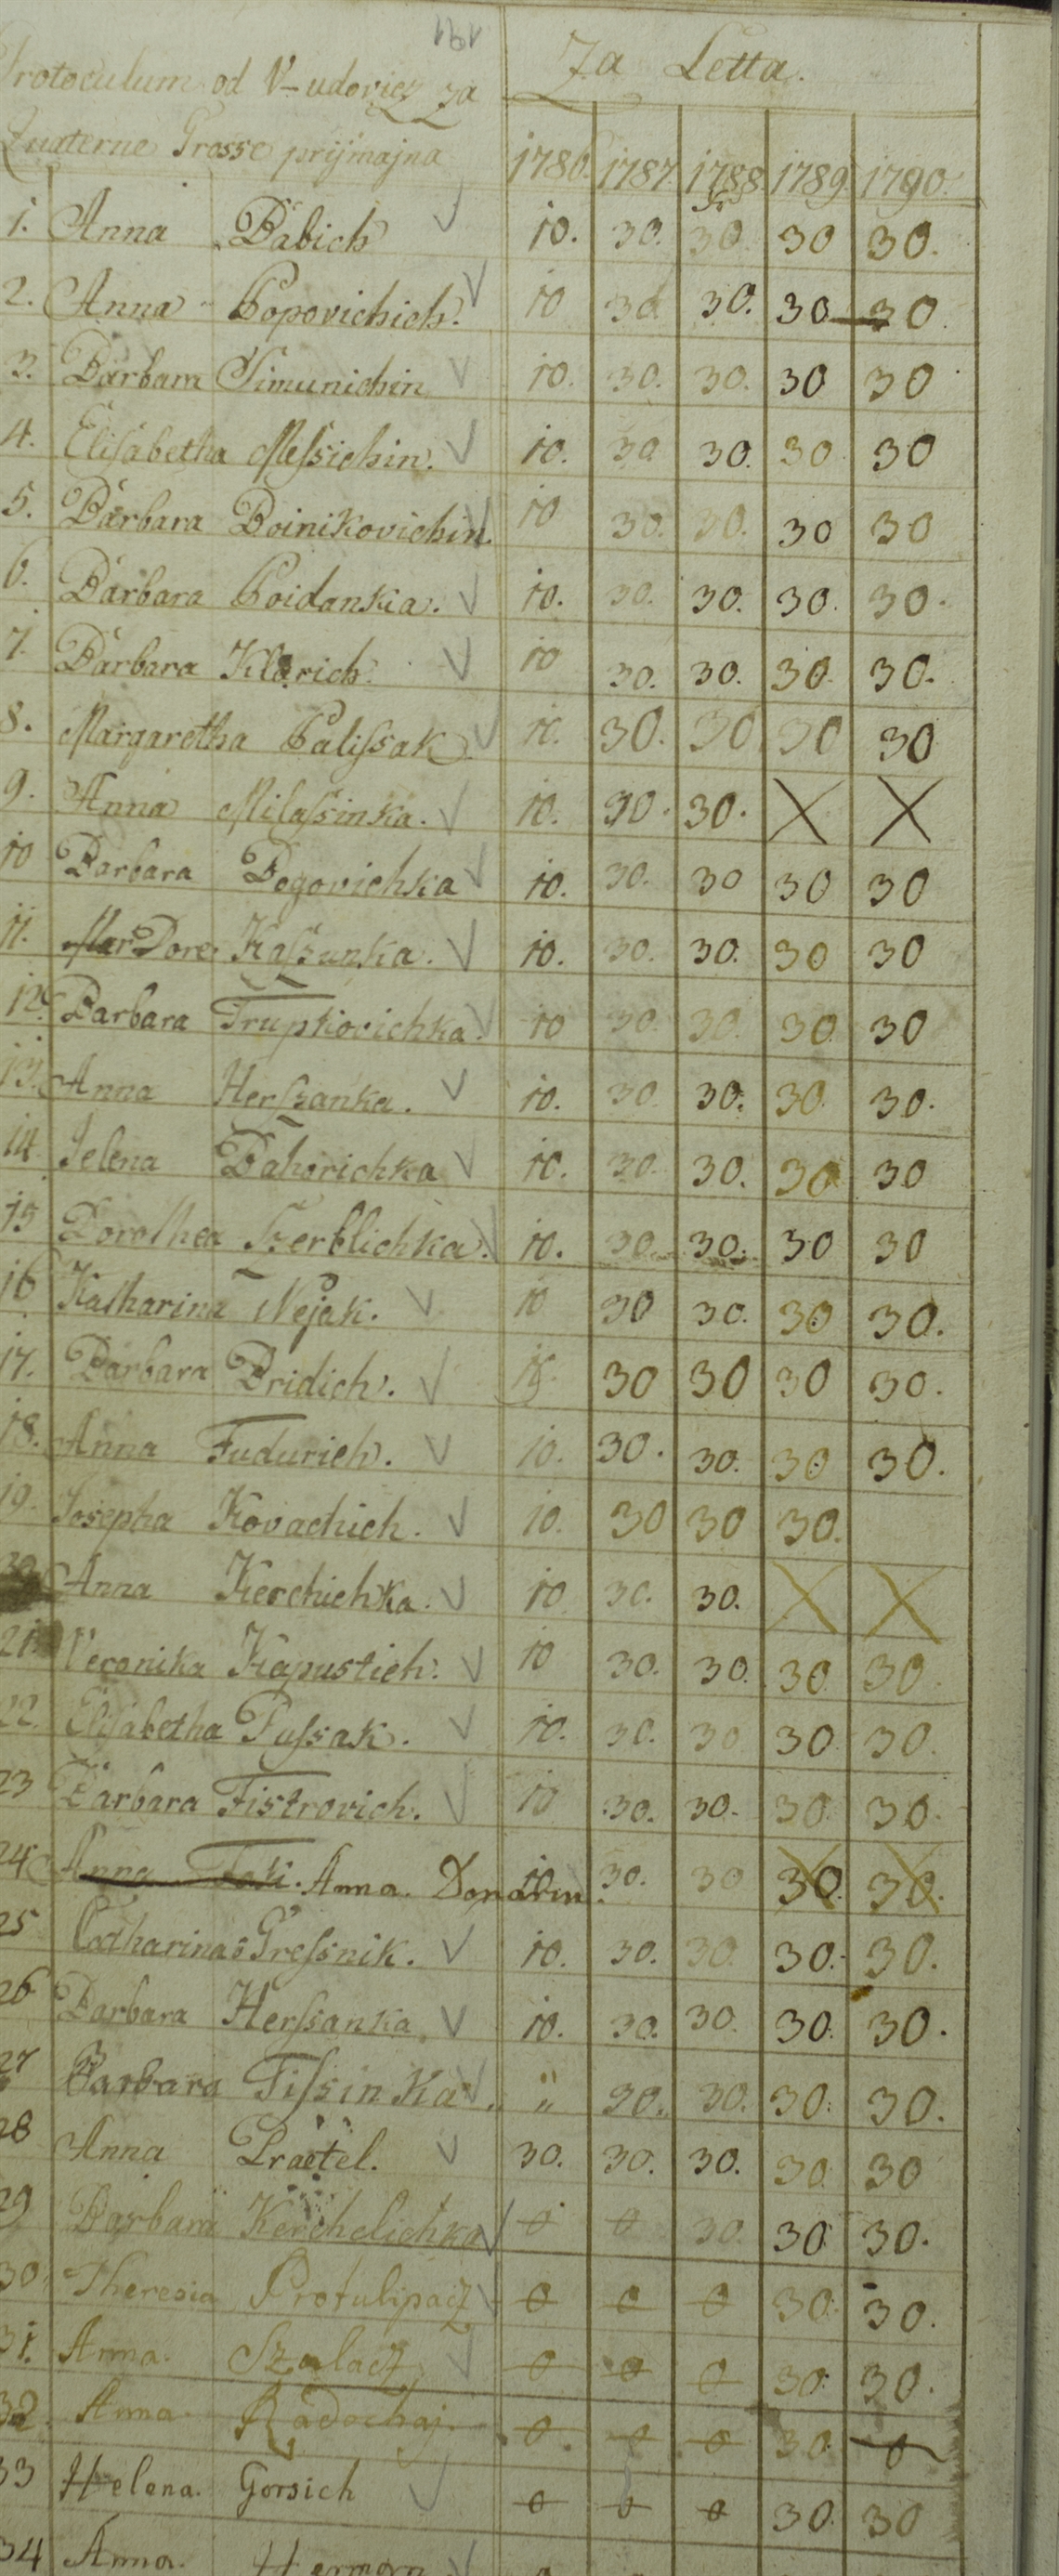 191
Protoculum od V-udovicz za Za Letta.
Quaterne Grosse prijmajna 1786. 1787. 1788. 1789. 1790.
1. Anna Babich 10. 30. 30. 30 30.
2. Anna Popovichich. 10 30 30. 30 30.
3. Barbara Simunichin 10. 30. 30. 30 30
4. Elisabetha Messichin. 10. 30 30. 30 30
5. Barbara Boinikovichin. 10 30. 30. 30 30
6. Barbara Poidanka. 10. 30. 30. 30. 30.
7. Barbara Klarich. 10 30. 30. 30. 30.
8. Margaretha Palissak 10. 30. 30 30 30
9. Anna Milassinka. 10. 30. 30. X X
10 Barbara Degovichka 10. 30. 30 30 30
11. Mar Dore KasSunka. 10. 30. 30. 30 30
12. Barbara Trupkovichka. 10 30. 30. 30. 30
13. Anna Herszanka. 10. 30. 30. 30. 30.
14 Jelena Bahorichka 10. 30. 30. 30 30
15 Dorothea Szerblichka. 10. 30 30. 30 30
16 Katharina Nejak. 10 30 30. 30 30.
17. Barbara Bridich. 15. 30 30 30 30.
18. Anna Fudurich. 10. 30. 30. 30 30.
19. Josepha Kovachich. 10. 30 30 30.
20 Anna Kerchichka. 10 30. 30. X X
21. Veronika Kapustich. 10 30. 30. 30. 30.
22. Elisabetha Pussak. 10. 30. 30 30 30.
23 Barbara Fistrovich. 10 30. 30. 30. 30.
24 Anna Fak. Anna. Donarin 10. 30. 30 30. 30.
25 Catharina Gressnik. 10. 30. 30. 30. 30.
26 Barbara Herssanka 10. 30. 30. 30. 30.
27 Barbara Tissinka " 30. 30. 30. 30.
28 Anna Praetel. 30. 30. 30. 30 30
29 Barbara Kerchelichka 0 0 30. 30. 30.
30. Theresia Protulipacz 0 0 0 30. 30.
31. Anna. Szalacz 0 0 0 30. 30.
32. Anna Radochaj. 0 0 0 30. 0
33 Helena. Gorsich 0 0 0 30. 30
34 Anna. Hermann